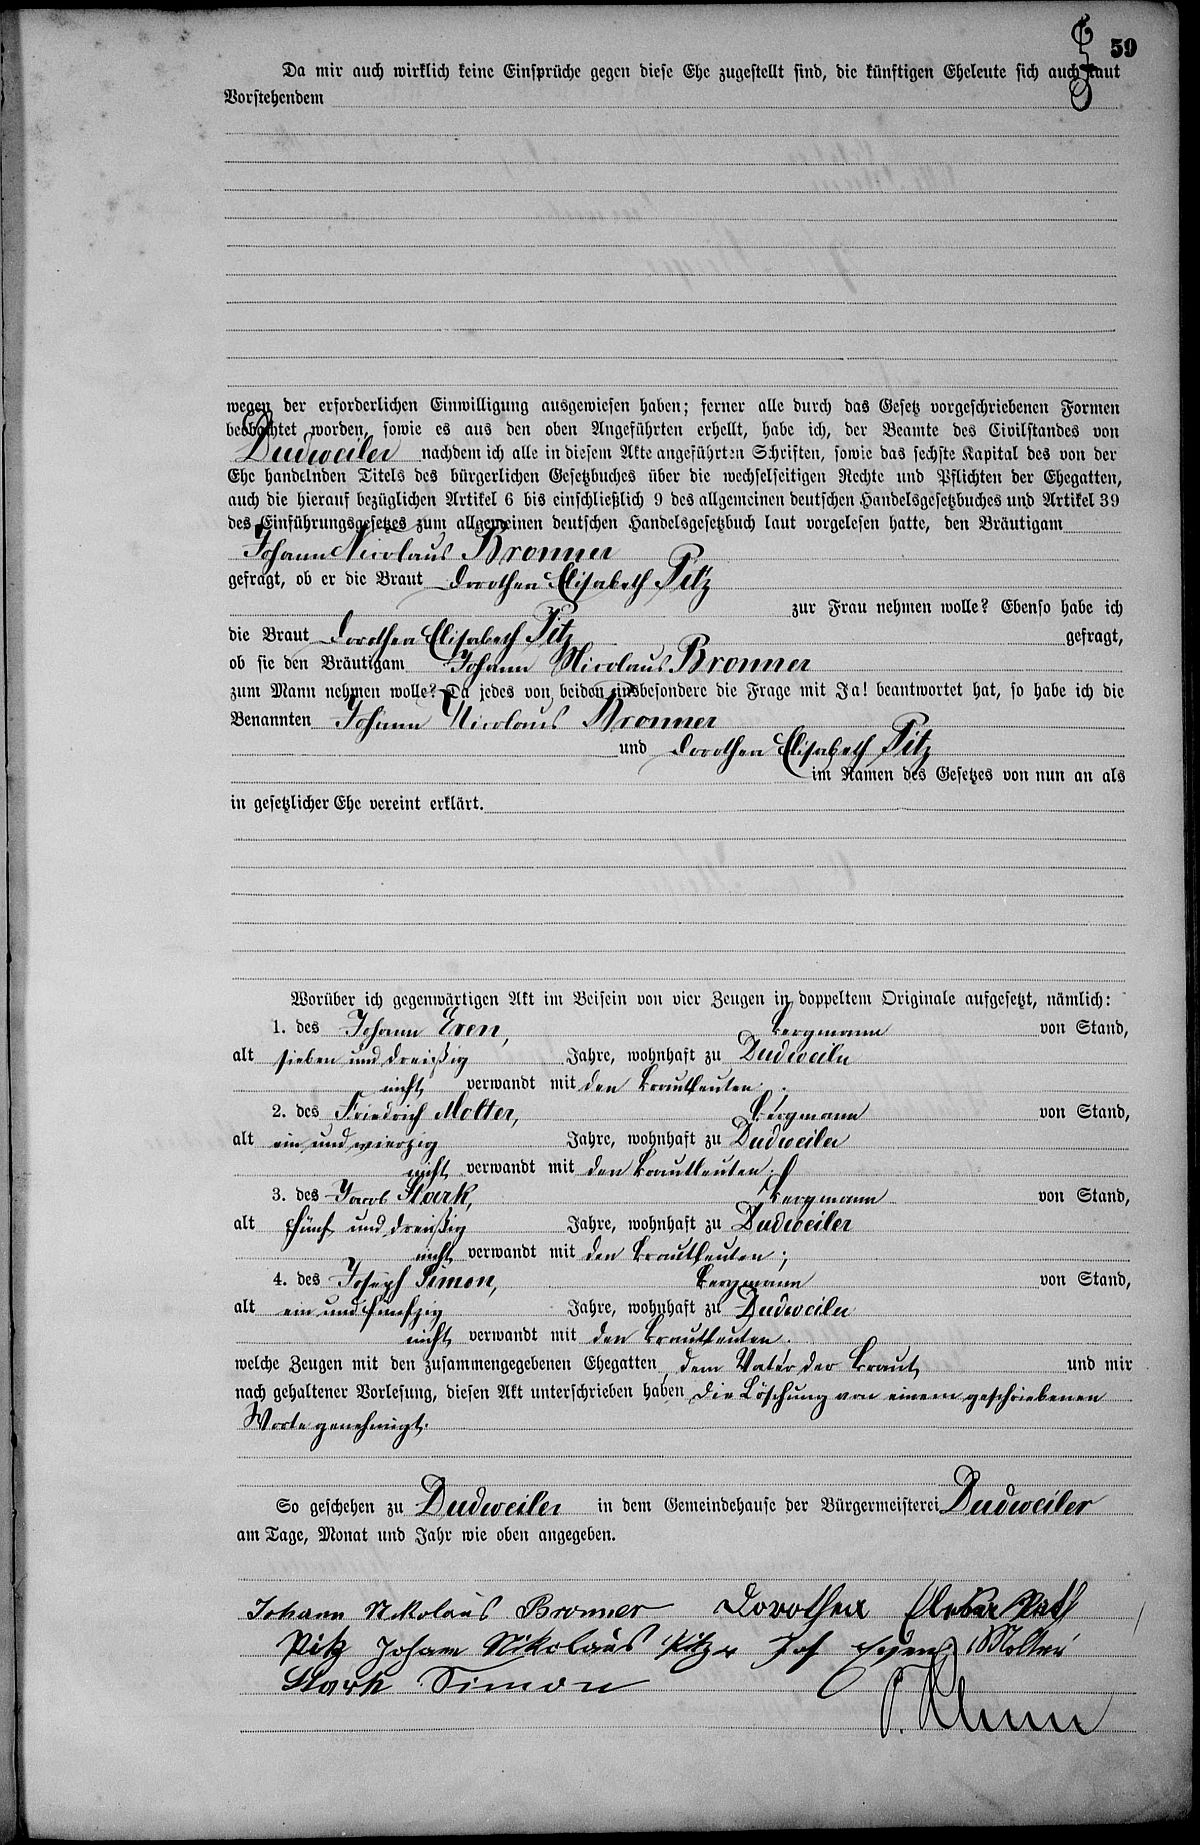 59
Da mir auch wirklich keine Einsprüche gegen diese Ehe zugestellt sind, die künftigen Eheleute sich auch laut
Vorstehendem
wegen der erforderlichen Einwilligung ausgewiesen haben; ferner alle durch das Gesetz vorgeschriebenen Formen
beobachtet worden, sowie es aus den oben Angeführten erhellt, habe ich, der Beamte des Civilstandes von
Dudweiler nachdem ich alle in diesem Akte angeführten Schriften, sowie das sechste Kapital des von der
Ehe handelnden Titels des bürgerlichen Gesetzbuches über die wechselseitigen Rechte und Pflichten der Ehegatten,
auch die hierauf bezüglichen Artikel 6 bis einschließlich 9 des allgemeinen deutschen Handelsgesetzbuches und Artikel 39
des Einführungsgesetzes zum allgemeinen deutschen Handelsgesetzbuch laut vorgelesen hatte, den Bräutigam
Johann Nicolaus Bronner
gefragt, ob er die Braut Dorothea Elisabeth Pitz
zur Frau nehmen wolle? Ebenso habe ich
die Braut Dorothea Elisabeth Pitz gefragt,
ob sie den Bräutigam Johann Nicolaus Bronner
zum Mann nehmen wolle? Da jedes von beiden insbesondere die Frage mit Ja! beantwortet hat, so habe ich die
Benannten Johann Nicolaus Bronner
und Dorothea Elisabeth Pitz
im Namen des Gesetzes von nun an als
in gesetzlicher Ehe vereint erklärt.
Worüber ich gegenwärtigen Akt im Beisein von vier Zeugen in doppeltem Originale aufgesetzt, nämlich:
1. des Johann Even, Bergmann von Stand,
alt sieben und dreißig Jahre, wohnhaft zu Dudweiler
nicht verwandt mit den Brautleuten.
2. des Friedrich Molter, Bergmann von Stand,
alt ein und vierzig Jahre, wohnhaft zu Dudweiler
nicht verwandt mit den Brautleuten;
3. des Jacob Stark, Bergmann von Stand,
alt fünf und dreißig Jahre, wohnhaft zu Dudweiler
nicht verwandt mit den Brautleuten;
4. des Joseph Simon, Bergmann von Stand,
alt ein und fünfzig Jahre, wohnhaft zu Dudweiler
nicht verwandt mit den Brautleuten.
welche Zeugen mit den zusammengegebenen Ehegatten, dem Vater der Braut und mir
nach gehaltener Vorlesung, diesen Akt unterschrieben haben die Löschung von einem geschriebenen
Worte genehmigt.
So geschehen zu Dudweiler in dem Gemeindehause der Bürgermeisterei Dudweiler
am Tage, Monat und Jahr wie oben angegeben.
Johann Nikolaus Bronner Dorothea
Pitz Johann Nikolaus Pitz Joh Even Molter
Stark Simon